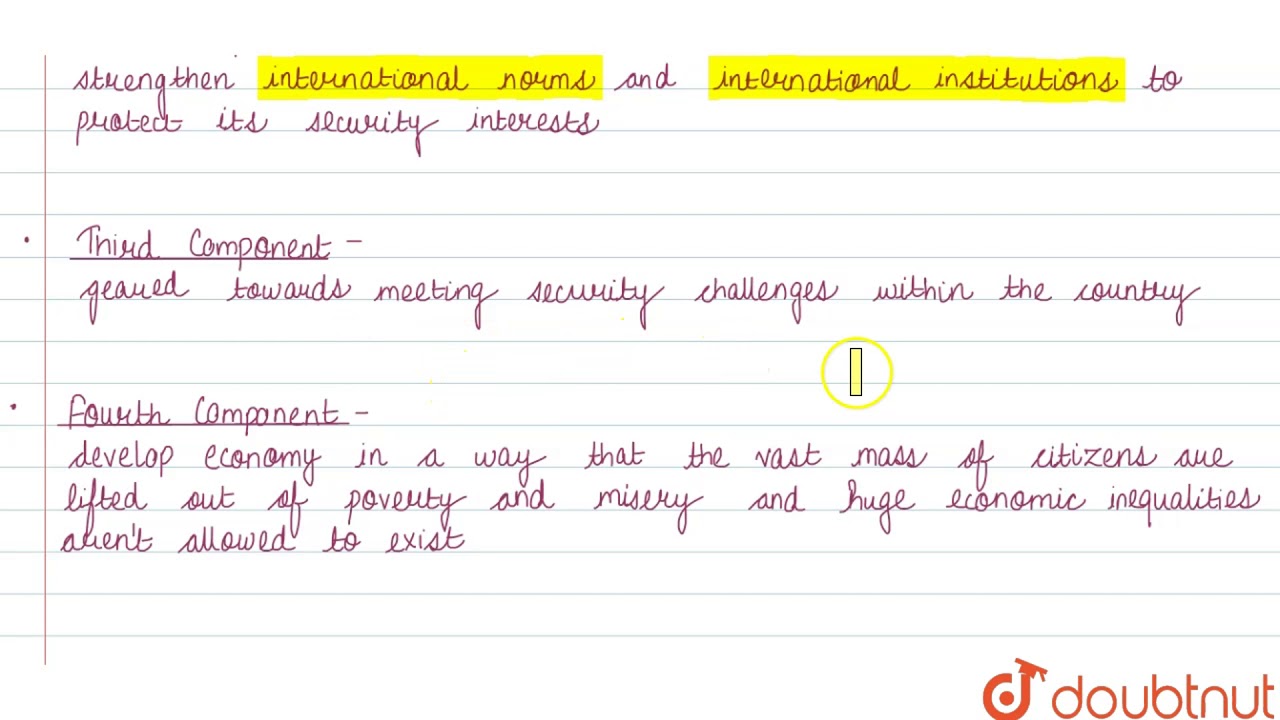 strengthen international norms and international institutions to
protect its security interests
• Third Component -
geared towards meeting security challenges within the country
• Fourth Component -
develop economy in a way that the vast mass of citizens are
lifted out of poverty and misery and huge economic inequalities
aren't allowed to exist
doubtnut